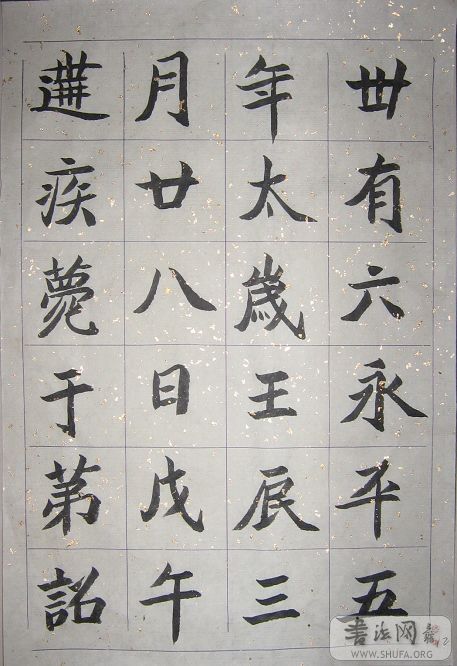 卅有六永平五
年太歲王辰三
月廿八日戊午
遘疾薨于苐詔
書法网
WWW.SHUFA.ORG